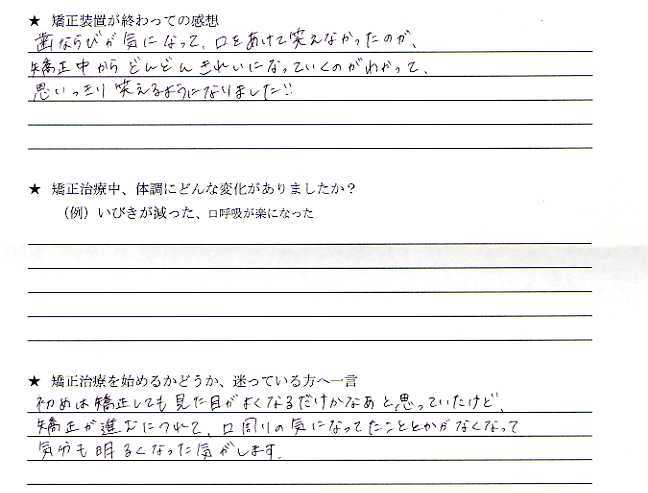 ★ 矯正装置が終わっての感想
歯ならびが気になって、口をあけて笑えなかったのが、
矯正中からどんどんきれいになっていくのがわかって、
思いっきり笑えるようになりました!!
★ 矯正治療中、体調にどんな変化がありましたか？
（例）いびきが減った、口呼吸が楽になった
★ 矯正治療を始めるかどうか、迷っている方へ一言
初めは矯正しても見た目がよくなるだけかなあと思っていたけど、
矯正が進むにつれて、口周りの気になってたこととかがなくなって
気分も明るくなった気がします。